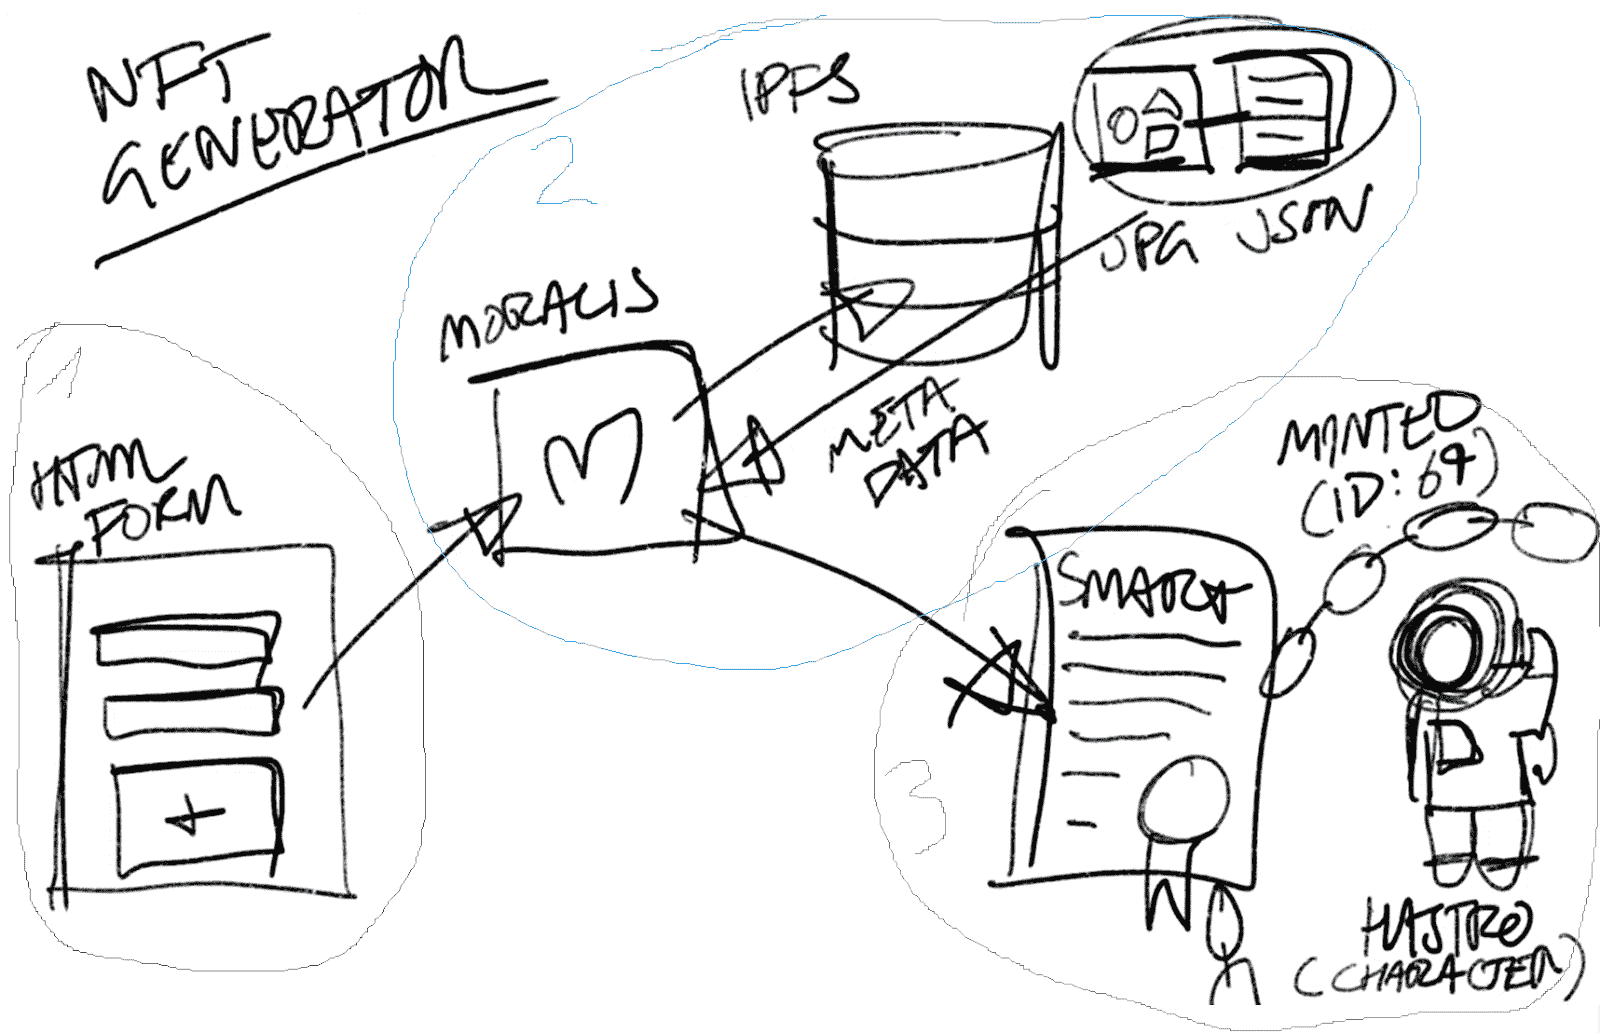 NFT
GENERATOR
1
HTML
FORM
2
MORALIS
M
IPFS
META
DATA
JPG JSON
3
SMART
MINTED
(ID: 69)
HASTRO
(CHARACTER)